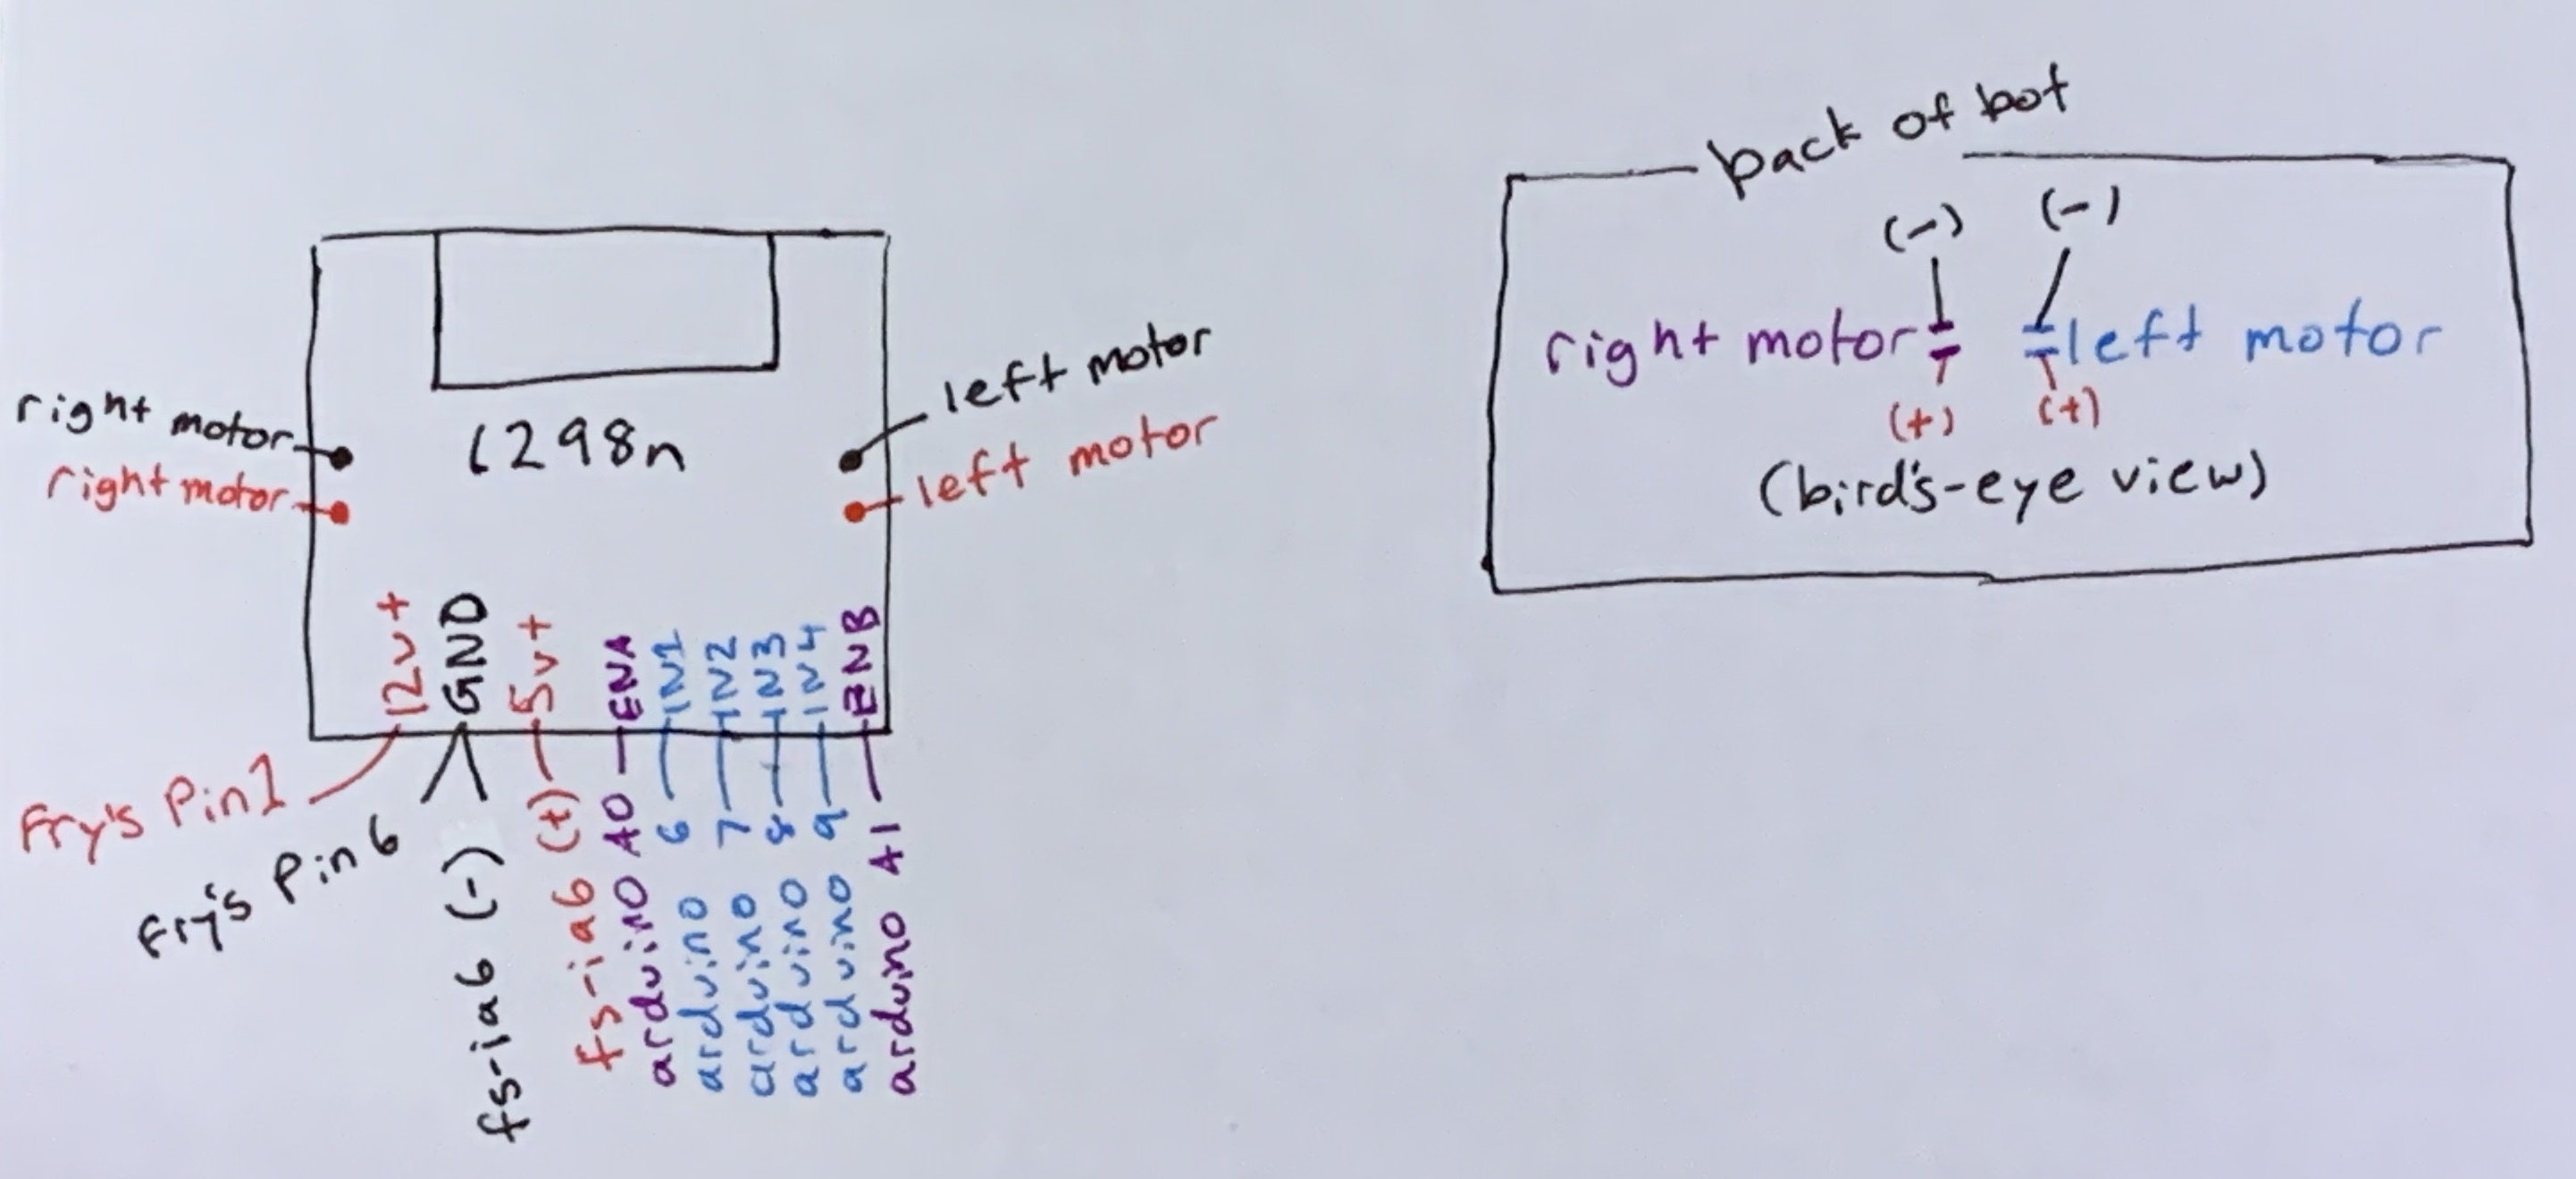 back of bot
(-) (-)
right motor left motor
(+) (+)
(bird's-eye view)
left motor
left motor
right motor
right motor
l298n
12v+
GND
5v+
ENA
IN1
IN2
IN3
IN4
ENB
Fry's Pin 1
Fry's Pin 6
fs-ia6 (-)
fs-ia6 (+)
arduino A0
arduino 6
arduino 7
arduino 8
arduino 9
arduino A1